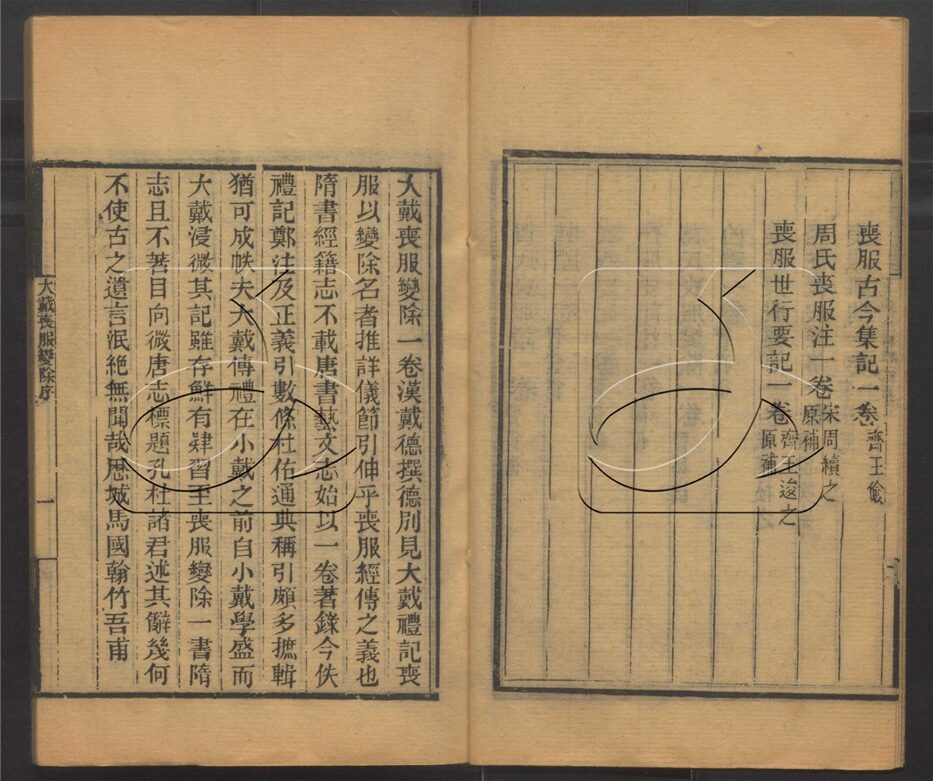 喪服古今集記一卷齊王儉
周氏喪服注一卷宋周續之原補
喪服世行要記一卷齊王逡之原補
大戴喪服變除一卷漢戴德撰德別見大戴禮記喪
服以變除名者推詳儀節引伸乎喪服經傳之義也
隋書經籍志不載唐書藝文志始以一卷著錄今佚
禮記鄭注及正義引數條杜佑通典稱引頗多摭輯
猶可成帙夫大戴傳禮在小戴之前自小戴學盛而
大戴浸微其記雖存鮮有肄習至喪服變除一書隋
志且不著目向微唐志標題孔杜諸君述其辭幾何
不使古之遺言泯絶無聞哉歴城馬國翰竹吾甫
大戴喪服變除序
一